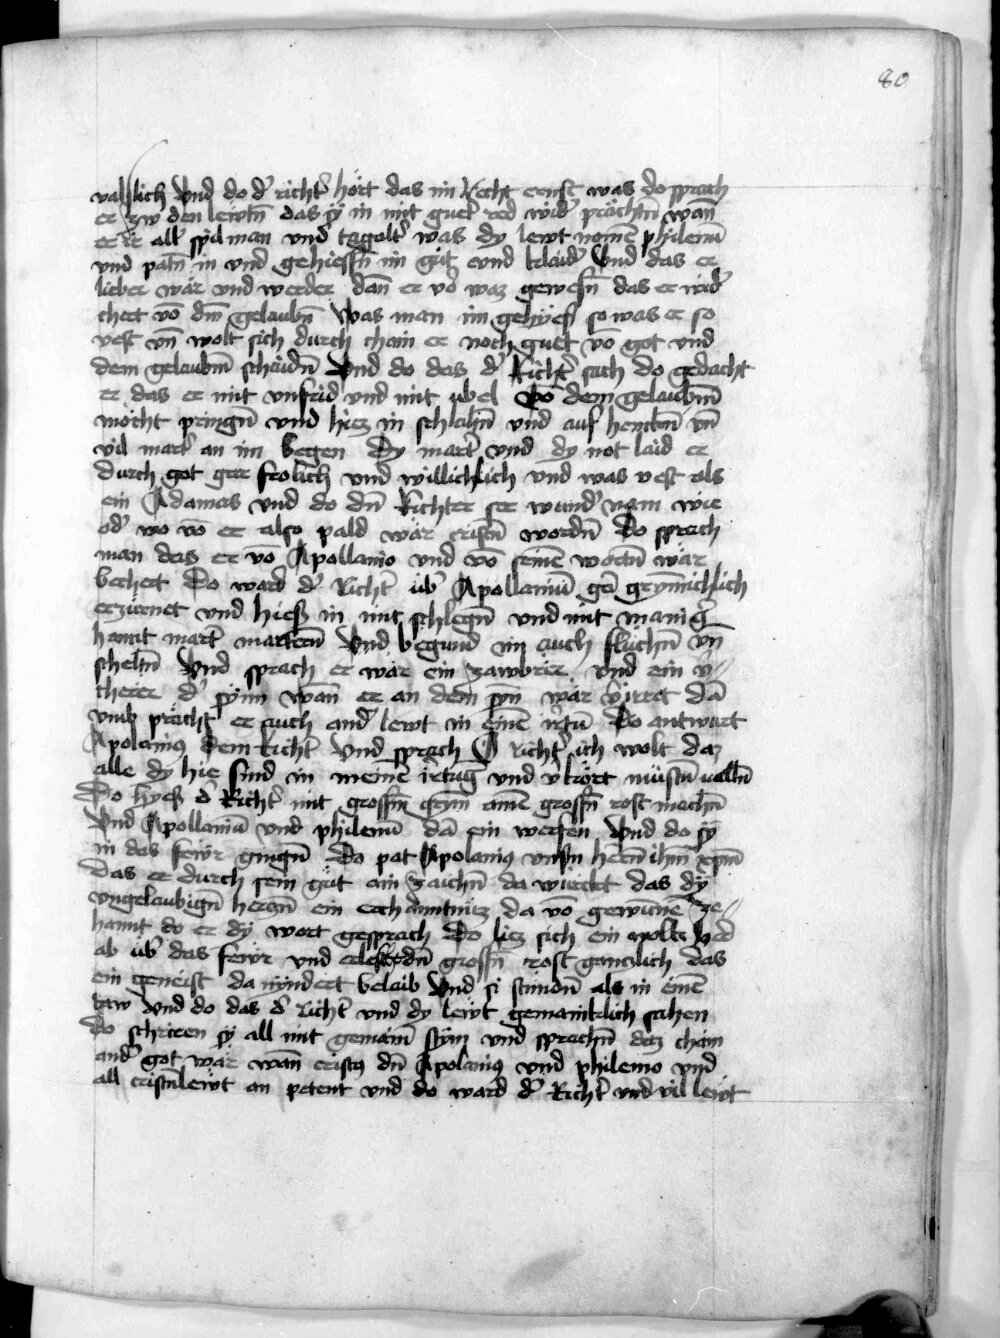 80
valslich Vnd do d̾ richt̾ hört das im Recht ernst was do sprach
er zw den lewtn̄ das sy in mit guet̾ red wid̾ prächtn̄ wan̄
er ir all̾ spilman vnd tagalt̾ was dy lewt nomē philenū
vnd patn̄ in vnd gehiessn̄ im güt vnd klaid̾ Vnd das er
lieber wär vnd werder dan̄ er vō waz gewesn̄ das er wid̾
chert vō dm̄ gelaubn̄ Was man im gehyess so was er so
vest vn̄ wolt sich durch chain er noch guet vō got vnd
dem gelaubn̄ schaidn̄ Vnd do das d̾ Richt̾ sach do gedacht
er das er mit vnfrid vnd mit übel vō dem gelaubm̄
möcht pringn̄ vnd hiez in schlahn̄ vnd auf henckn̄ vn̄
vil mart̾ an im begen Dy mart̾ vnd dy not laid er
durch got gar frolich vnd willichlich vnd was vest als
ein Adamas vnd do dn̄ Richter ser wund̾ nam wie
od̾ wo vō er also pald wär cristn̄ wordn̄ Do sprach
man das er vo Apollanio vnd vō seinē wortn̄ wär
bechert Do ward d̾ Richt̾ üb̾ Apollaniū gar grymichlich
erzürnet vnd hiess in mit schlegn̄ vnd mit manig̾
hannt mart̾ martern̄ Vnd begund im auch fluchn̄ vn̄
scheltn̄ Vnd sprach er wär ein zawbrer vnd ein v̾
cherer d̾ synn wan̄ er an dem syn̄ wär v̾irret dā
vmb prächt er auch and̾ lewt in einē irtū Do antwurt
Apolanius dem richt̾ Vnd sprach O richt̾ ich wolt daz
alle dy hie sind in meinē irtūg vnd v̾kört müstn̄ valln̄
Do hyess d̾ Richt̾ mit grossm̄ grym̄ ainē grossn̄ rost machn̄
Vnd Apollaniū vnd philenū dā ein werfen Vnd do sy
in das fewr gingn̄ Do pat Apolanius vnsn̄ herrn̄ ihm̄ xpm̄
das er durch sein güt ain zaichn̄ da würcket das dy
vngelaubign̄ herczn̄ ein erchanntnüz da vō gewūnē ze
hannt do er dy wort gesprach Do liez sich ein wolckn̄ her
ab üb̾ das fewr vnd erleschtn̄ grossn̄ rost gancz̄lich das
ein geneist da nyndert belaib Vnd si stundn̄ als in einē
taw Vnd do das d̾ richt̾ vnd dy lewt gemaincklich sahen
Do schrirēn sy all mit gemain̄ stym̄ vnd sprachn̄ daz chain
and̾ got wär wan̄ cristus dn̄ Apolanius vnd philemo vnd
all cristnlewt an petent vnd do ward d̾ Richt̾ vnd vil lewt